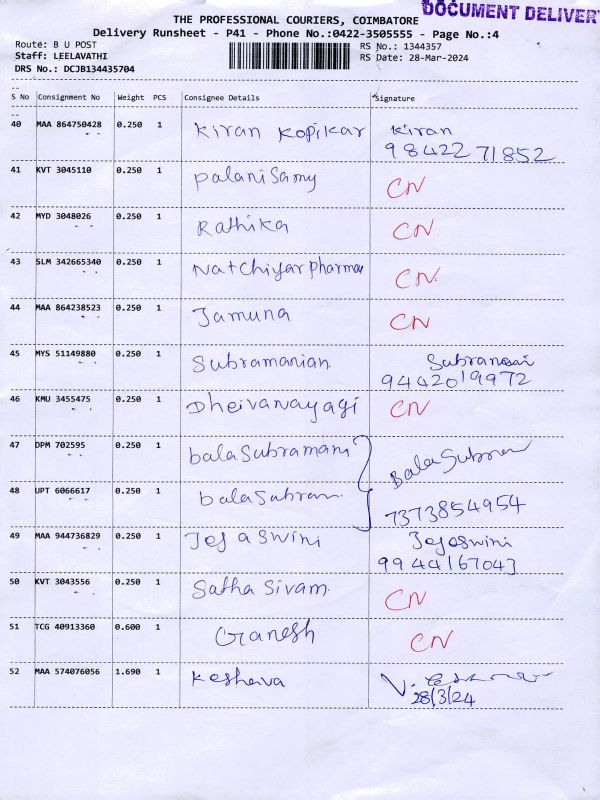 DOCUMENT DELIVERY
THE PROFESSIONAL COURIERS, COIMBATORE
Delivery Runsheet - P41 - Phone No.:0422-3505555 - Page No.:4
Route: B U POST
Staff: LEELAVATHI
DRS No.: DCJB134435704
RS No.: 1344357
RS Date: 28-Mar-2024
S No Consignment No Weight PCS Consignee Details Signature
40 MAA 864750428 0.250 1 Kiran Kopikar Kiran
98422 71852
41 KVT 3045110 0.250 1 Palanisamy CN
42 MYD 3048026 0.250 1 Rathika CN
43 SLM 342665340 0.250 1 Natchiyar pharma CN
44 MAA 864238523 0.250 1 Jamuna CN
45 MYS 51149880 0.250 1 Subramanian
9442019972
46 KMU 3455475 0.250 1 Dheivanayagi CN
47 DPM 702595 0.250 1 balasubramani
48 UPT 6066617 0.250 1 balasubram
7373854954
49 MAA 944736829 0.250 1 Tejaswini Tejaswini
9944167043
50 KVT 3043556 0.250 1 Satha Sivam CN
51 TCG 40913360 0.600 1 Ganesh CN
52 MAA 574076056 1.690 1 Keshava
28/3/24